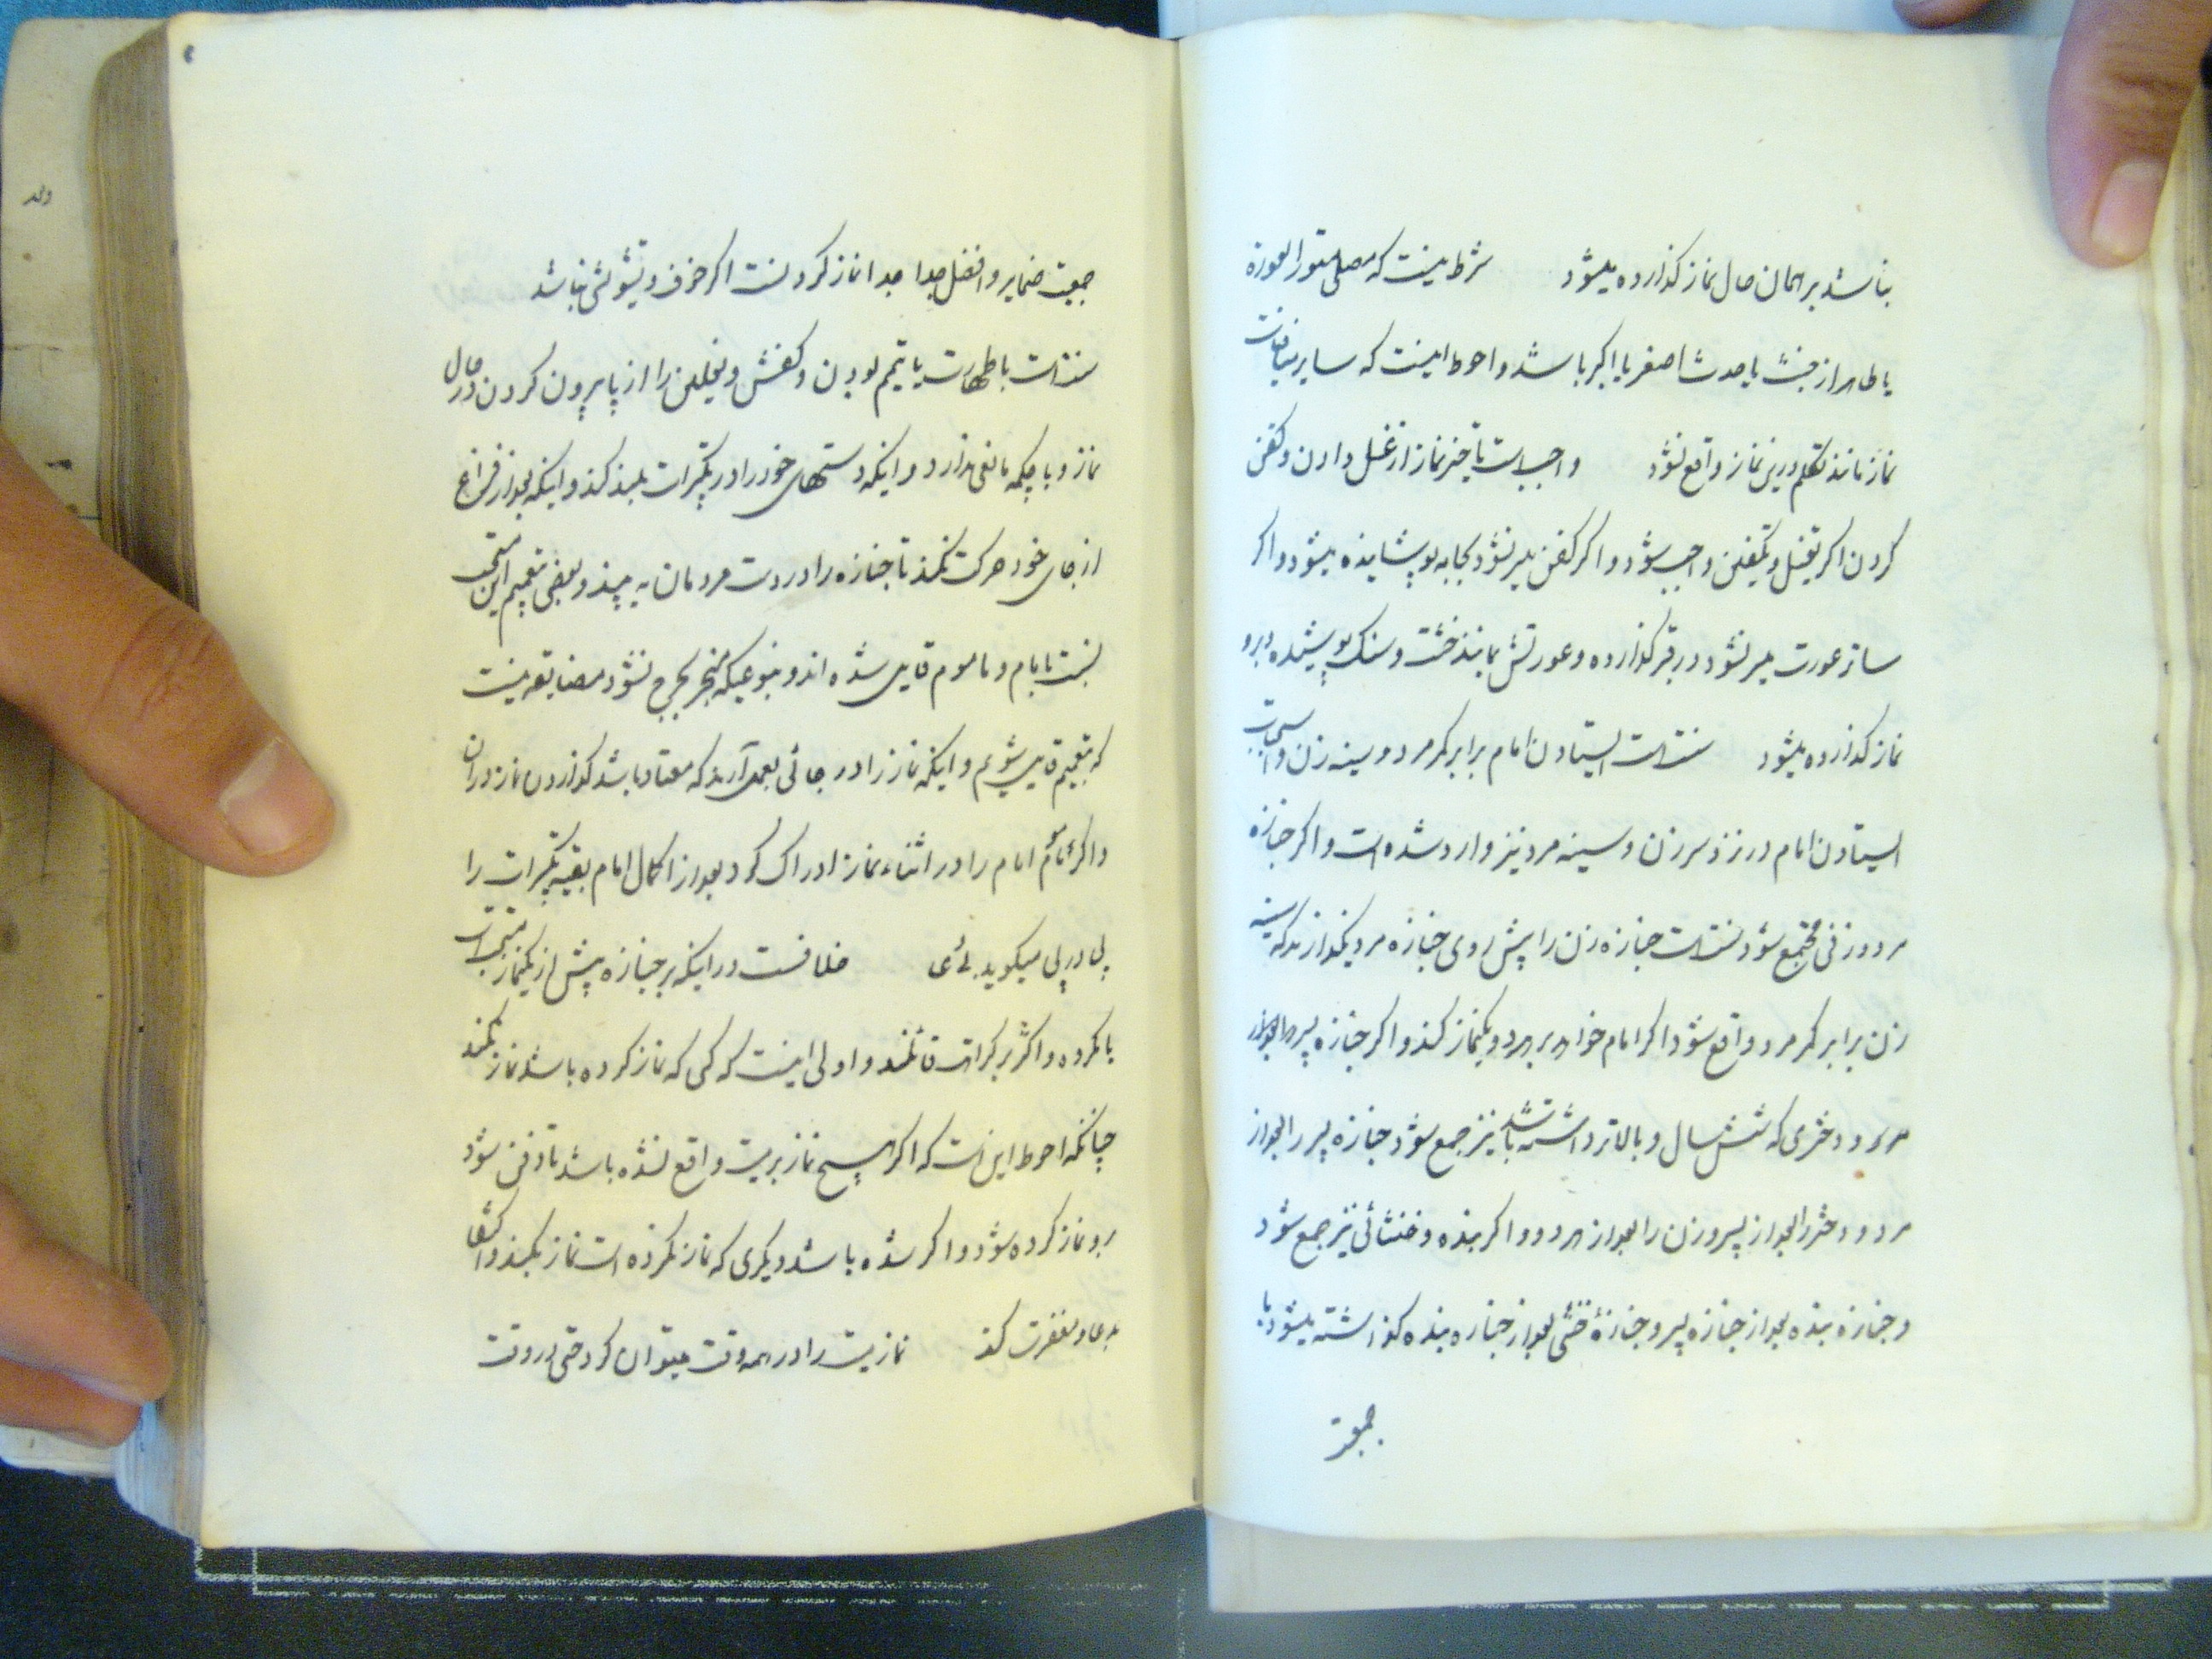 نباشد بر همان حال نماز گذارده میشود شرط نیست که مصلی مستور العورة
یا طاهر از خبث یا حدث اصغر یا اکبر باشد و احوط اینست که سایر منافیات
نماز مانند تکلم در این نماز واقع نشود واجبست تاخیر نماز از غسل دادن و کفن
کردن اگر تغسیل و تکفین واجب شود و اگر کفن میسر نشود بجامه پوشانیده میشود و اگر
ساتر عورت میسر نشود در قبر گذارده و عورتش بمانند خشت و سنگ پوشیده و برو
نماز گذارده میشود سنتست ایستادن امام برابر کمر مرد و سینه زن و استحباب
ایستادن امام در نزد سر زن و سینه مرد نیز وارد شده است و اگر جنازه
مرد و زنی مجتمع شود سنتست جنازه زن را پیش روی جنازه مرد بگذارند که سینه
زن برابر کمر مرد واقع شود اگر امام خواهد بر هر دو یکنماز کند و اگر جنازه پسر
مرد و دختری که شش سال و بالاتر داشته باشد نیز جمع شود جنازه پسر را بعد از
مرد و دختر را بعد از پسر و زن را بعد از هر دو و اگر بنده و خنثائی نیز جمع شود
و جنازه بنده بعد از جنازه پسر و جنازهٔ خنثی بعد از جنازه بنده گذاشته میشود با
جمعیت
جمعیت ضمایر و افضل جدا جدا نماز کردنست اگر خوف و تشویشی نباشد
سنتست با طهارت یا تیمم بودن و کفش و نعلین را از پا بیرون کردن در حال
نماز و با چکمه مانعی ندارد و اینکه دستهای خود را در تکبیرات بلند کند و اینکه بعد از فراغ
از جای خود حرکت نکند تا جنازه را در دست مردمان به بیند و بعضی بتعمیم این مستحب
نسبت بامام و ماموم قایل شده اند و بنوعیکه منجر بحرج نشود مضایقه نیست
که بتعمیم قایل شویم و اینکه نماز را در جائی بعمل آرند که معتاد باشد گذاردن نماز در ان
و اگر ماموم امام را در اثناء نماز ادراک کرد بعد از اکمال امام بقیه تکبیرات را
پی در پی میگوید خلافست در اینکه بر جنازه پیش از یکنماز مستحبست
یا مکروه و اکثر بر کراهت قائلند و اولی اینست که کسی که نماز کرده باشد نماز نکند
چنانکه احوط این است که اگر هیچ نماز بر میت واقع نشده باشد تا دفن شود
برو نماز کرده شود و اگر شده باشد دیگری که نماز نکرده است نماز نکند و اکتفا
بدعا و مغفرت کند نماز میت را در همه وقت میتوان کرد حتی در وقت